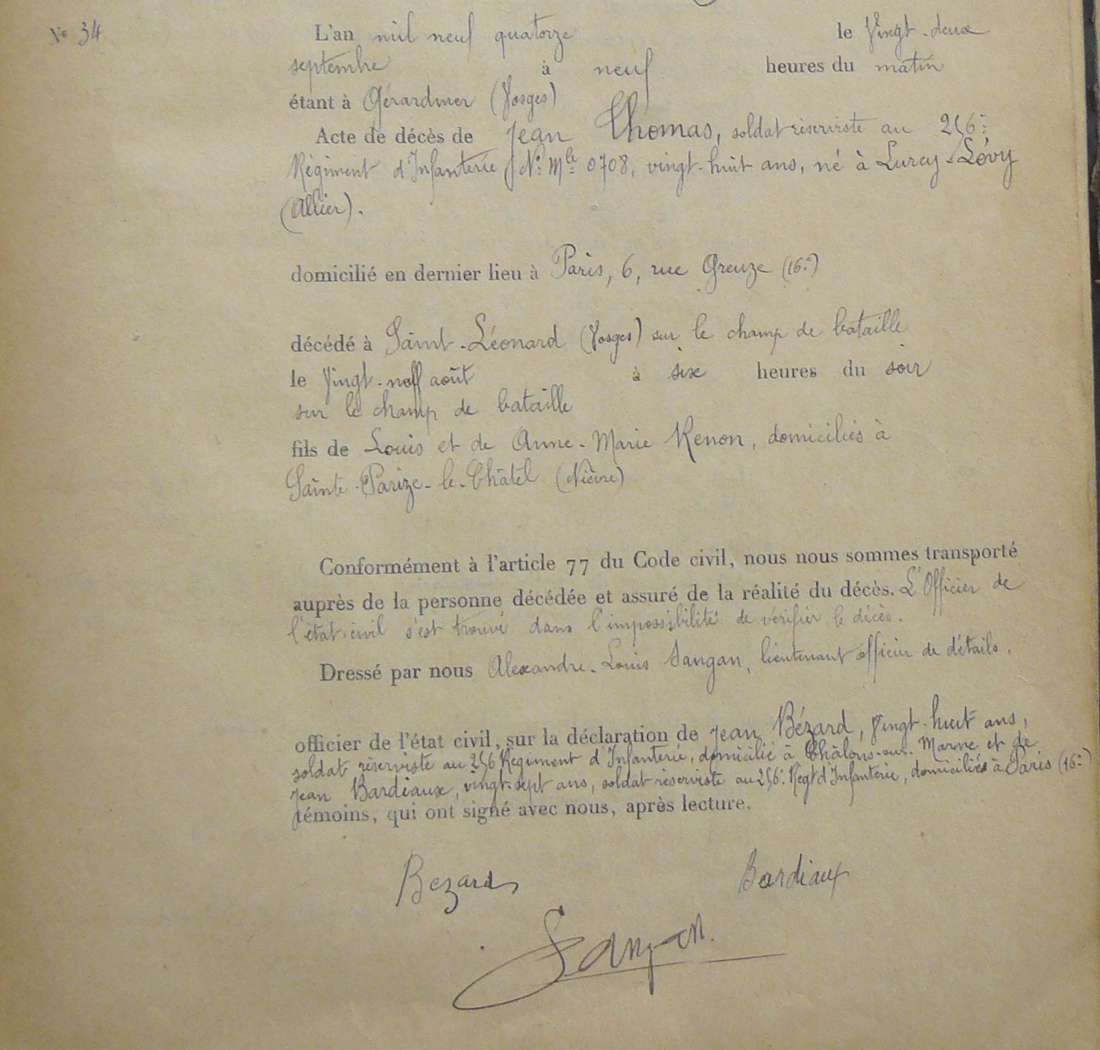 No 34
L'an mil neuf quatorze le Vingt-deux
septembre à neuf heures du matin
étant à Gérardmer (Vosges)
Acte de décès de Jean Thomas, soldat réserviste au 256e
Régiment d'Infanterie, No Mle 0708, vingt-huit ans, né à Lurcy-Lévy
(Allier).
domicilié en dernier lieu à Paris, 6, rue Greuze (16e)
décédé à Saint-Léonard (Vosges) sur le champ de bataille
le Vingt-neuf août à six heures du soir
sur le champ de bataille
fils de Louis et de Anne-Marie Renon, domiciliés à
Sainte-Parize-le-Châtel (Nièvre)
Conformément à l'article 77 du Code civil, nous nous sommes transporté
auprès de la personne décédée et assuré de la réalité du décès. L'Officier de
l'état-civil s'est trouvé dans l'impossibilité de vérifier le décès.
Dressé par nous Alexandre-Louis Sangan, lieutenant officier de détails.
officier de l'état civil, sur la déclaration de Jean Bézard, Vingt-huit ans,
soldat réserviste au 256 Régiment d'Infanterie, domicilié à Châlons-sur-Marne et de
Jean Bardiaux, vingt-sept ans, soldat réserviste au 256e Regt d'Infanterie, domiciliés à Paris (16e)
témoins, qui ont signé avec nous, après lecture.
Bezard Bardiaux
Sangan.